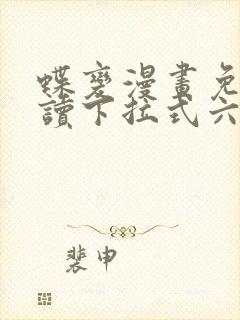 蝶变漫畫免
讀下拉式六
裴申